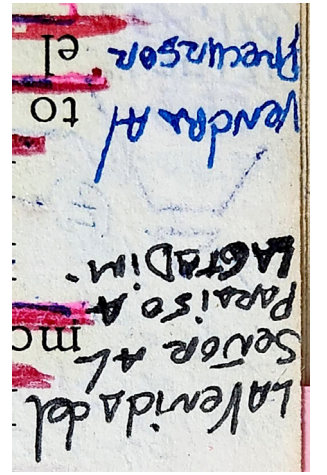 La Venida del
Señor AL
Paraiso. A
LA 6TA DIM.
Vendra Al
Precursor
to
el